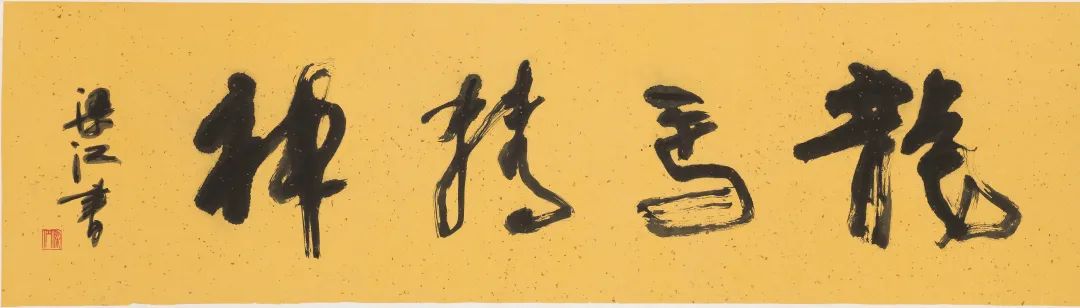 龍馬精神
梁江書